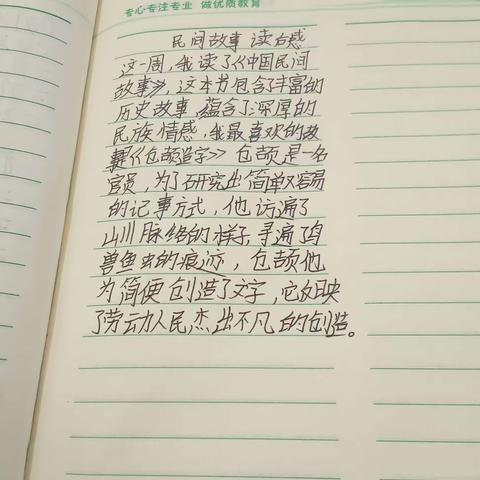 专心专注专业 做优质教育
民间故事 读后感
这一周,我读了《中国民间
故事》,这本书包含了丰富的
历史故事,蕴含了深厚的
民族情感,我最喜欢的故
事是《仓颉造字》仓颉是一名
官员,为了研究出简单又容易
的记事方式,他访遍了
山川脉络的样子,寻遍鸟
兽鱼虫的痕迹,仓颉他
为简便创造了文字,它反映
了劳动人民杰出不凡的创造。